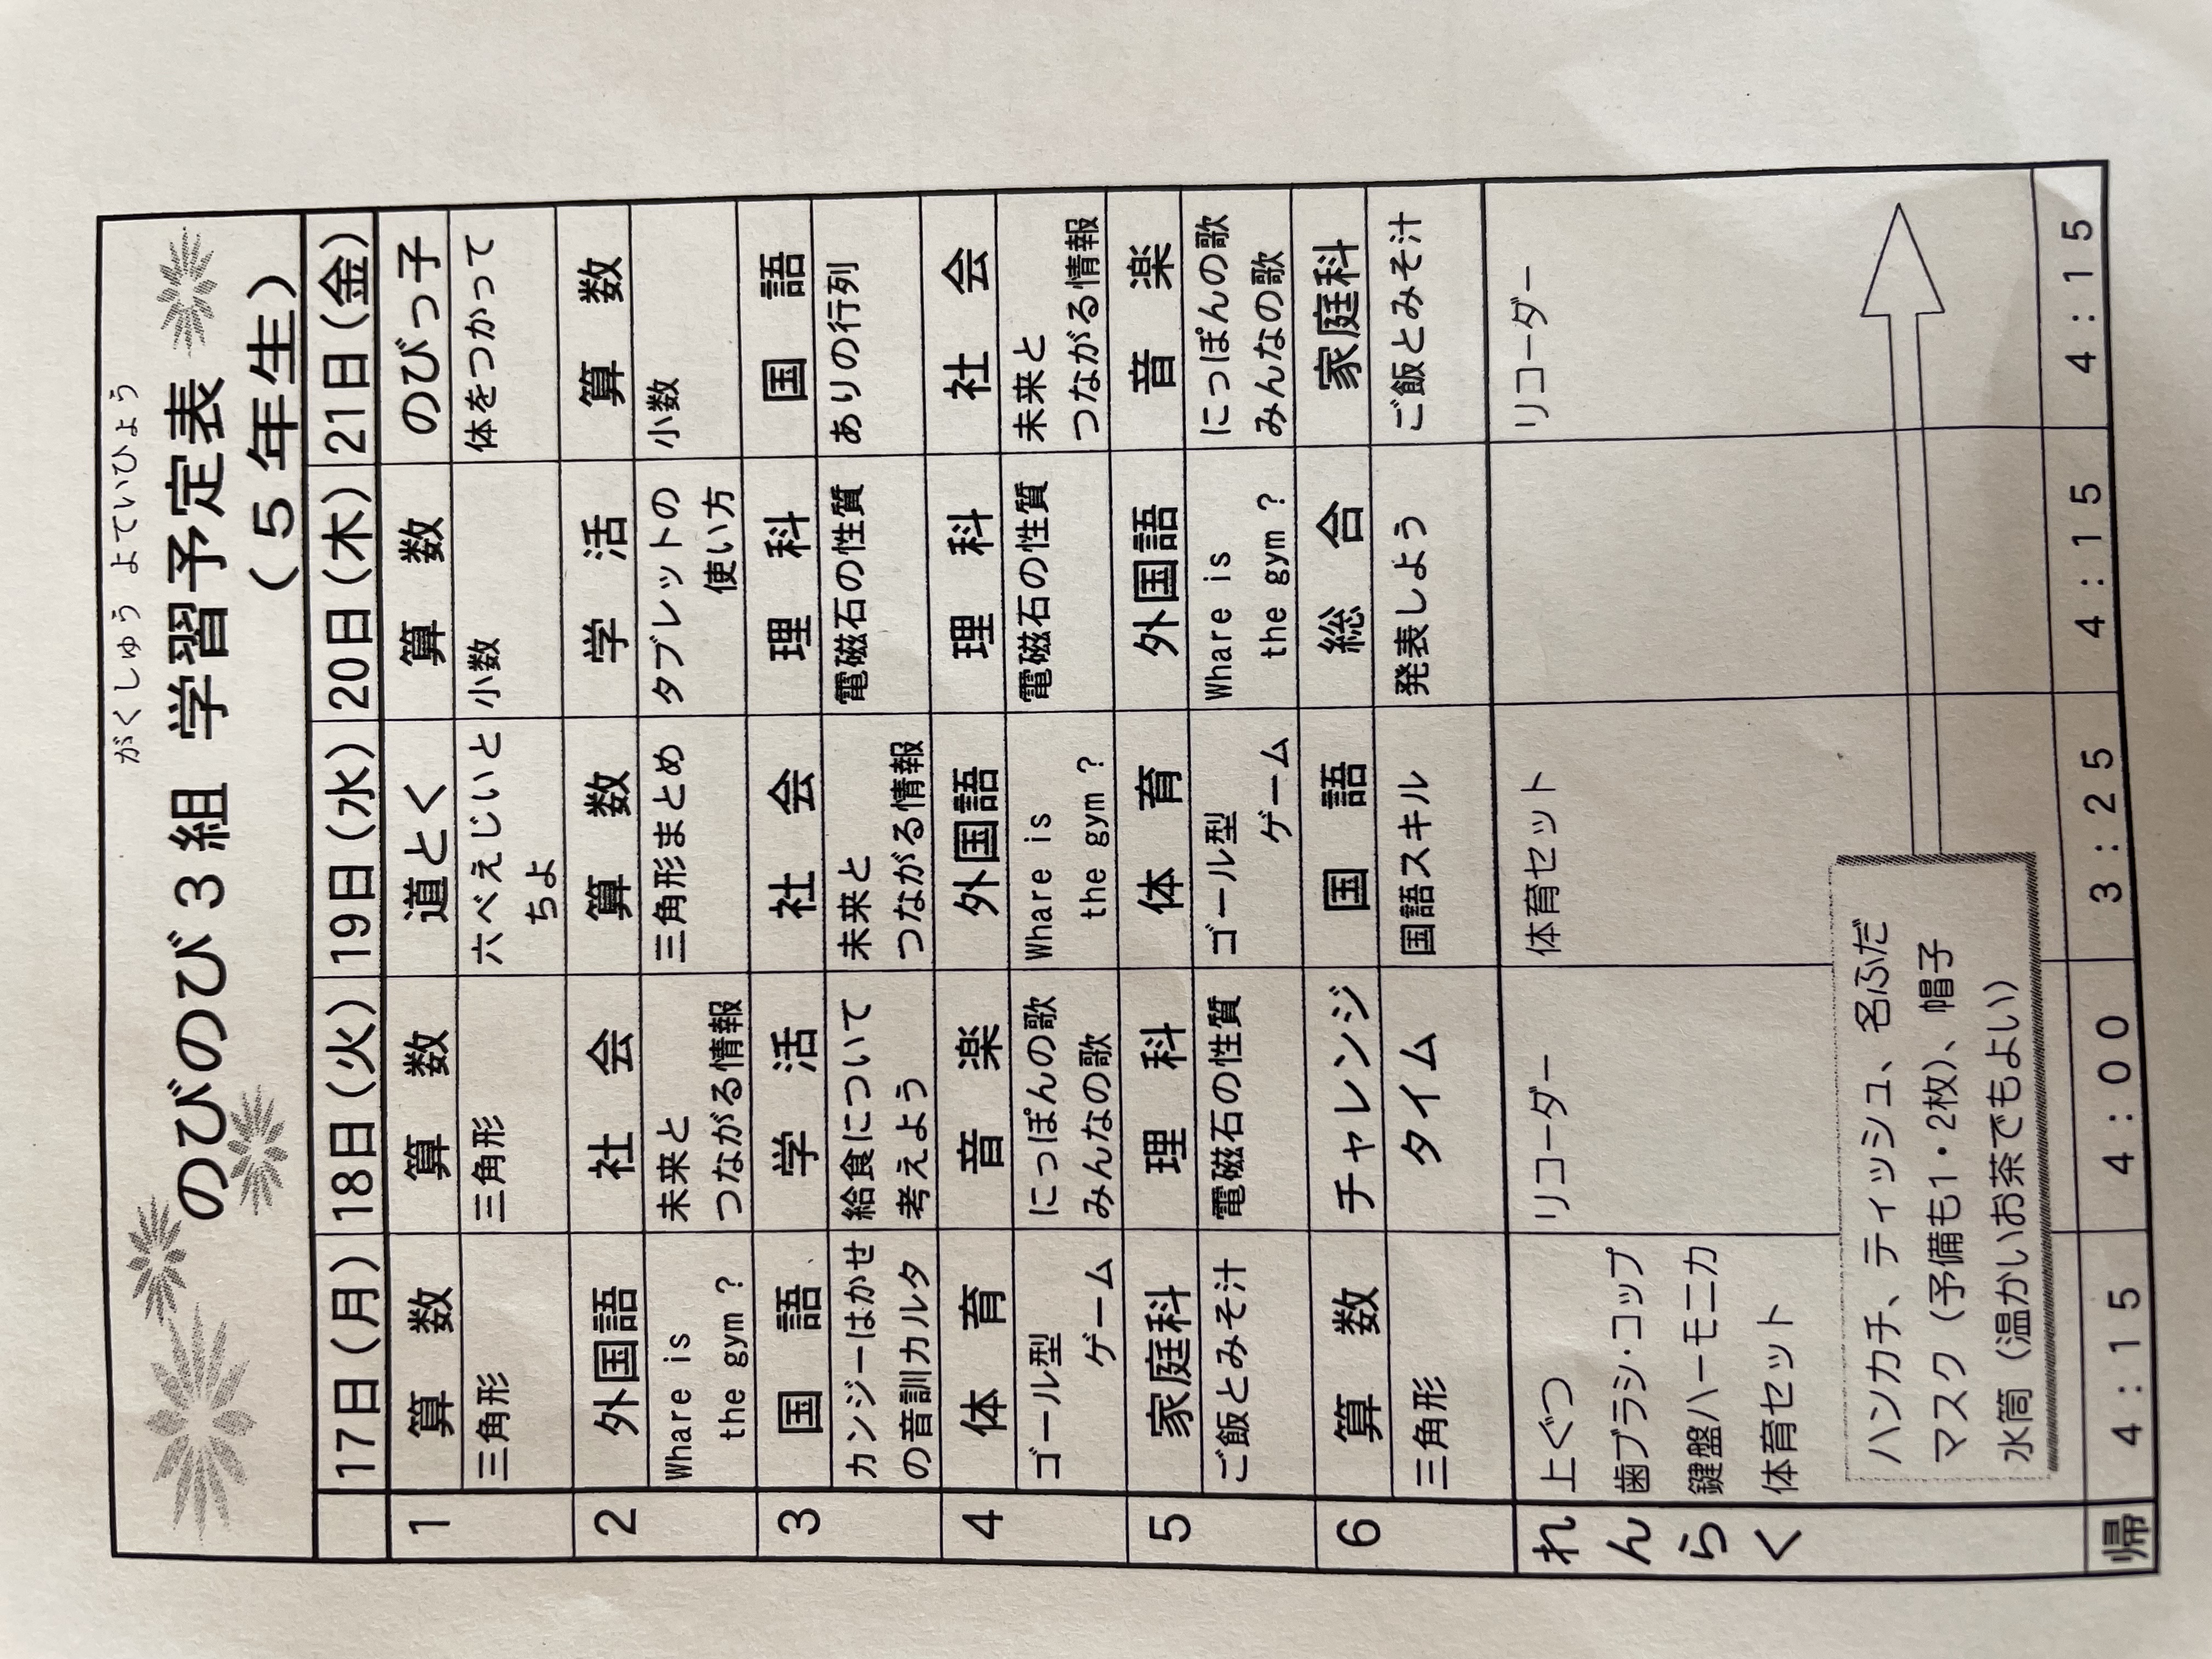 がくしゅう よていひょう
のびのび３組 学習予定表
（５年生）
17日（月） 18日（火） 19日（水） 20日（木） 21日（金）
1 算 数 算 数 道とく 算 数 のびっ子
三角形 三角形 六べえじいと 小数 体をつかって
ちよ
2 外国語 社 会 算 数 学 活 算 数
Whare is 未来と 三角形まとめ タブレットの 小数
the gym？ つながる情報 使い方
3 国 語 学 活 社 会 理 科 国 語
カンジーはかせ 給食について 未来と 電磁石の性質 ありの行列
の音訓カルタ 考えよう つながる情報
4 体 育 音 楽 外国語 理 科 社 会
ゴール型 にっぽんの歌 Whare is 電磁石の性質 未来と
ゲーム みんなの歌 the gym？ つながる情報
5 家庭科 理 科 体 育 外国語 音 楽
ご飯とみそ汁 電磁石の性質 ゴール型 Whare is にっぽんの歌
ゲーム the gym？ みんなの歌
6 算 数 チャレンジ 国 語 総 合 家庭科
三角形 タイム 国語スキル 発表しよう ご飯とみそ汁
れんらく
上ぐつ リコーダー 体育セット リコーダー
歯ブラシ・コップ
鍵盤ハーモニカ
体育セット
ハンカチ、ティッシュ、名ふだ
マスク（予備も1・2枚）、帽子
水筒（温かいお茶でもよい）
帰 4：15 4：00 3：25 4：15 4：15